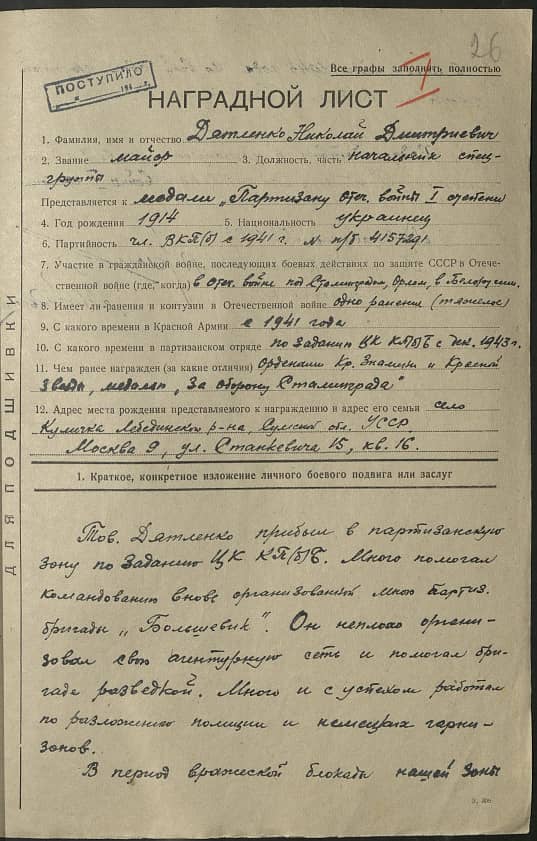 26
Все графы заполнить полностью
ПОСТУПИЛО
I
НАГРАДНОЙ ЛИСТ
1. Фамилия, имя и отчество Дятленко Николай Дмитриевич
2. Звание майор 3. Должность, часть начальник спец-
группы
Представляется к медали „Партизану отеч. войны I степени
4. Год рождения 1914 5. Национальность украинец
6. Партийность чл. ВКП(б) с 1941 г. № п/б 4157291
7. Участие в гражданской войне, последующих боевых действиях по защите СССР в Отече-
ственной войне (где, когда) в отеч. войне под Сталинградом, Орлом, в Белоруссии.
8. Имеет ли ранения и контузии в Отечественной войне одно ранение (тяжелое)
9. С какого времени в Красной Армии с 1941 года
10. С какого времени в партизанском отряде по заданию ЦК КП(б)Б с дек. 1943 г.
11. Чем ранее награжден (за какие отличия) Орденами Кр. Знамени и Красной
Звезды, медалью „За оборону Сталинграда"
12. Адрес места рождения представляемого к награждению и адрес его семьи село
Куличка Лебединского р-на, Сумской обл. УССР
Москва 9, ул. Станкевича 15, кв. 16.
1. Краткое, конкретное изложение личного боевого подвига или заслуг
Тов. Дятленко прибыл в партизанскую
зону по заданию ЦК КП(б)Б. Много помогал
командованию вновь организованной мною партиз.
бригады „Большевик". Он неплохо органи-
зовал свою агентурную сеть и помогал бри-
гаде разведкой. Много и с успехом работал
по разложению полиции и немецких гарни-
зонов.
В период вражеской блокады нашей зоны
ДЛЯ ПОДШИВКИ